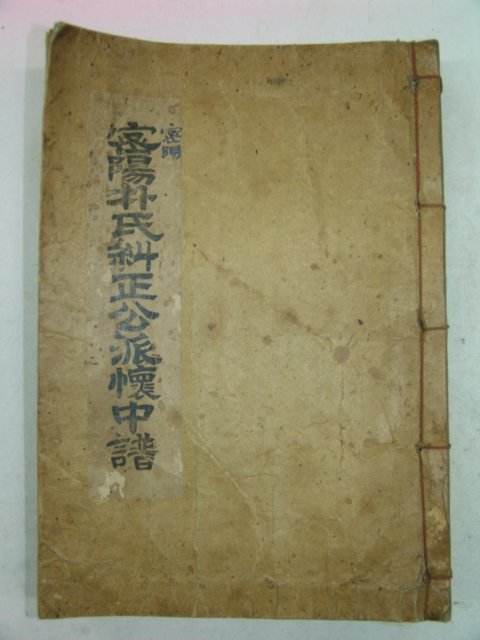 密陽朴氏糾正公派懷中譜
密陽